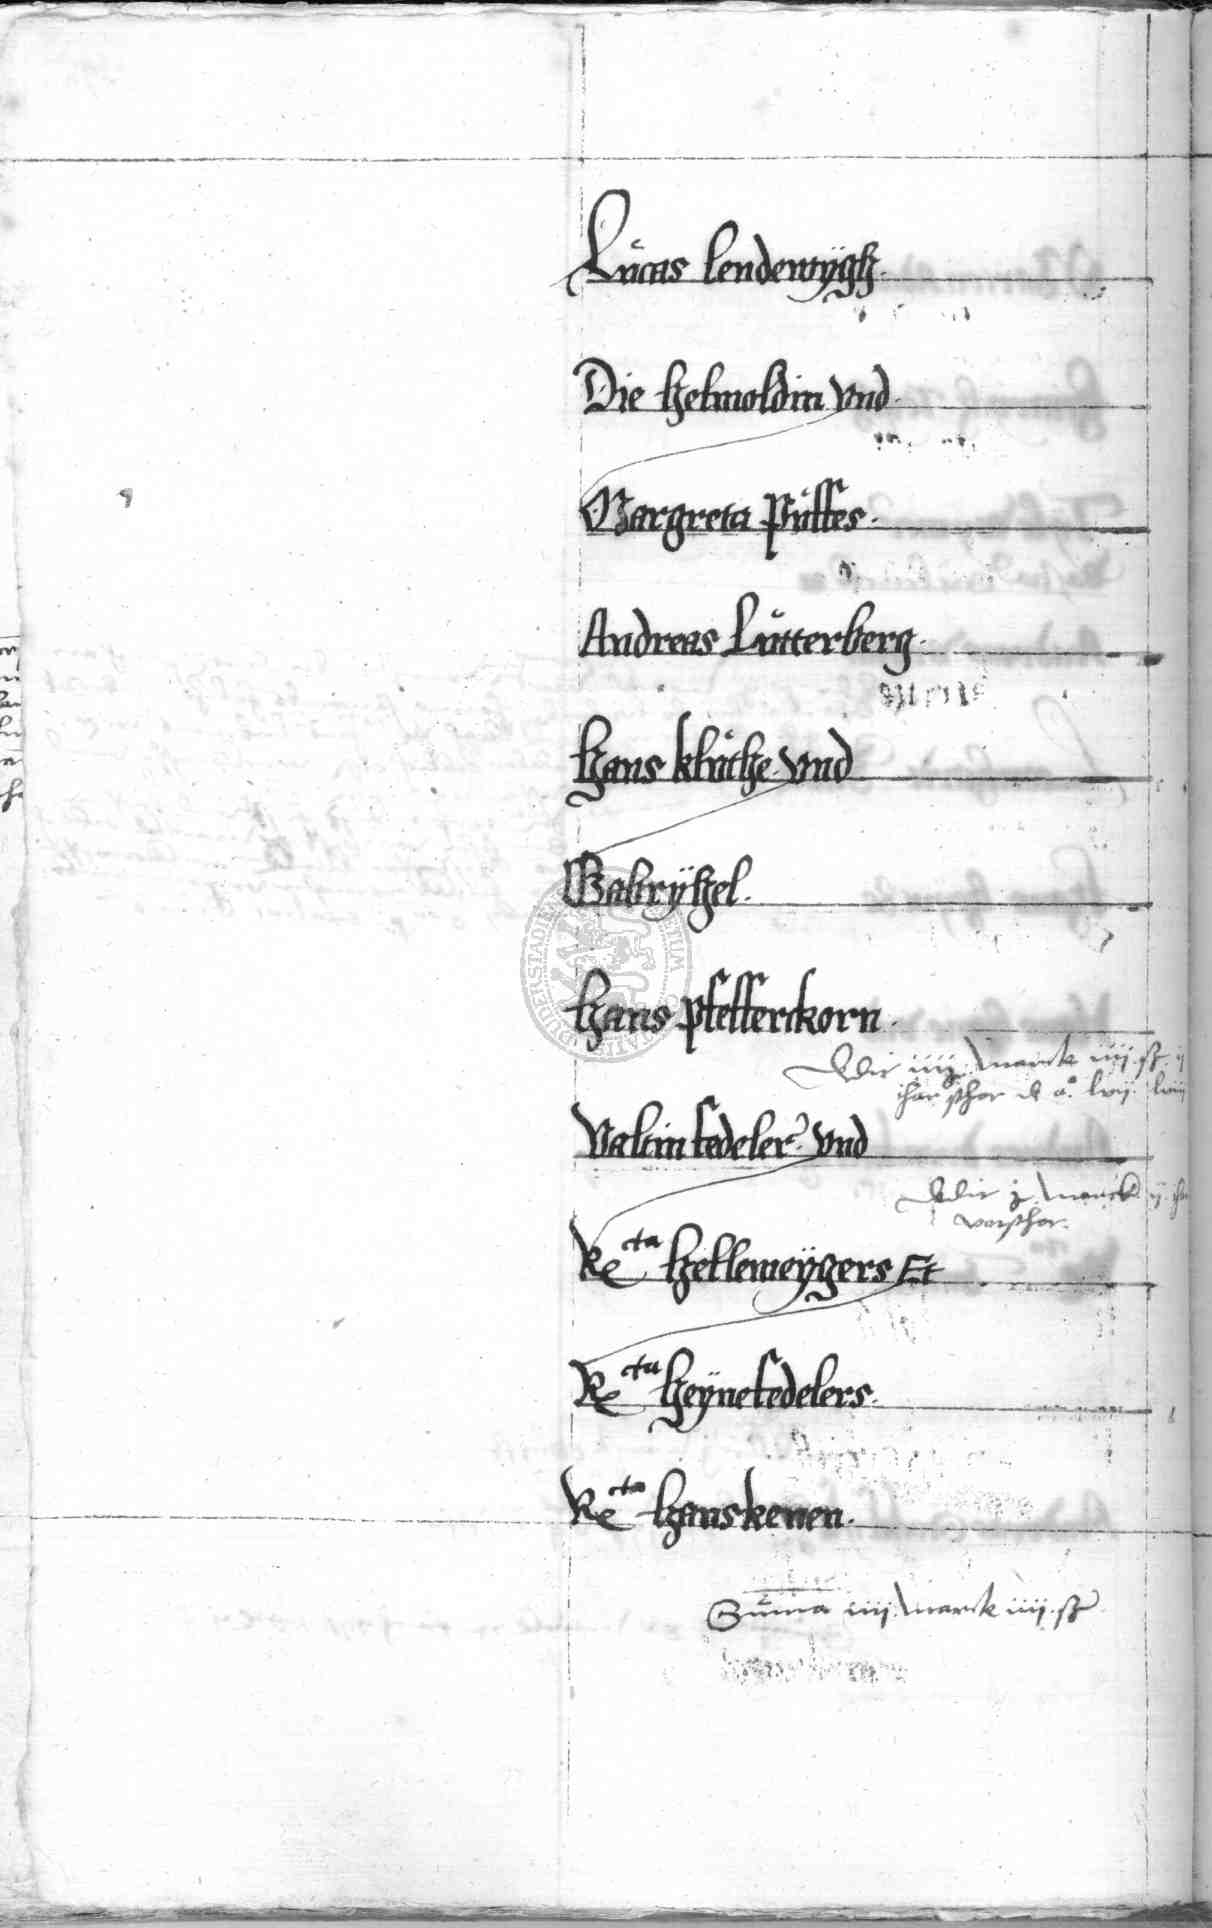 Lucas lendewÿgh.
Die helmoldin vnd
Margreta Puffes.
Andreas Lutterberg.
hans kluthe vnd
Gabrÿhel.
hans pfefferkorn.
marck iiij
Valtin fedeler vnd
marck
Re^cta hellemeÿgers Et
Re^cta heÿnefedelers.
Re^cta hanskenen.
Summa iiij marck iiij ß